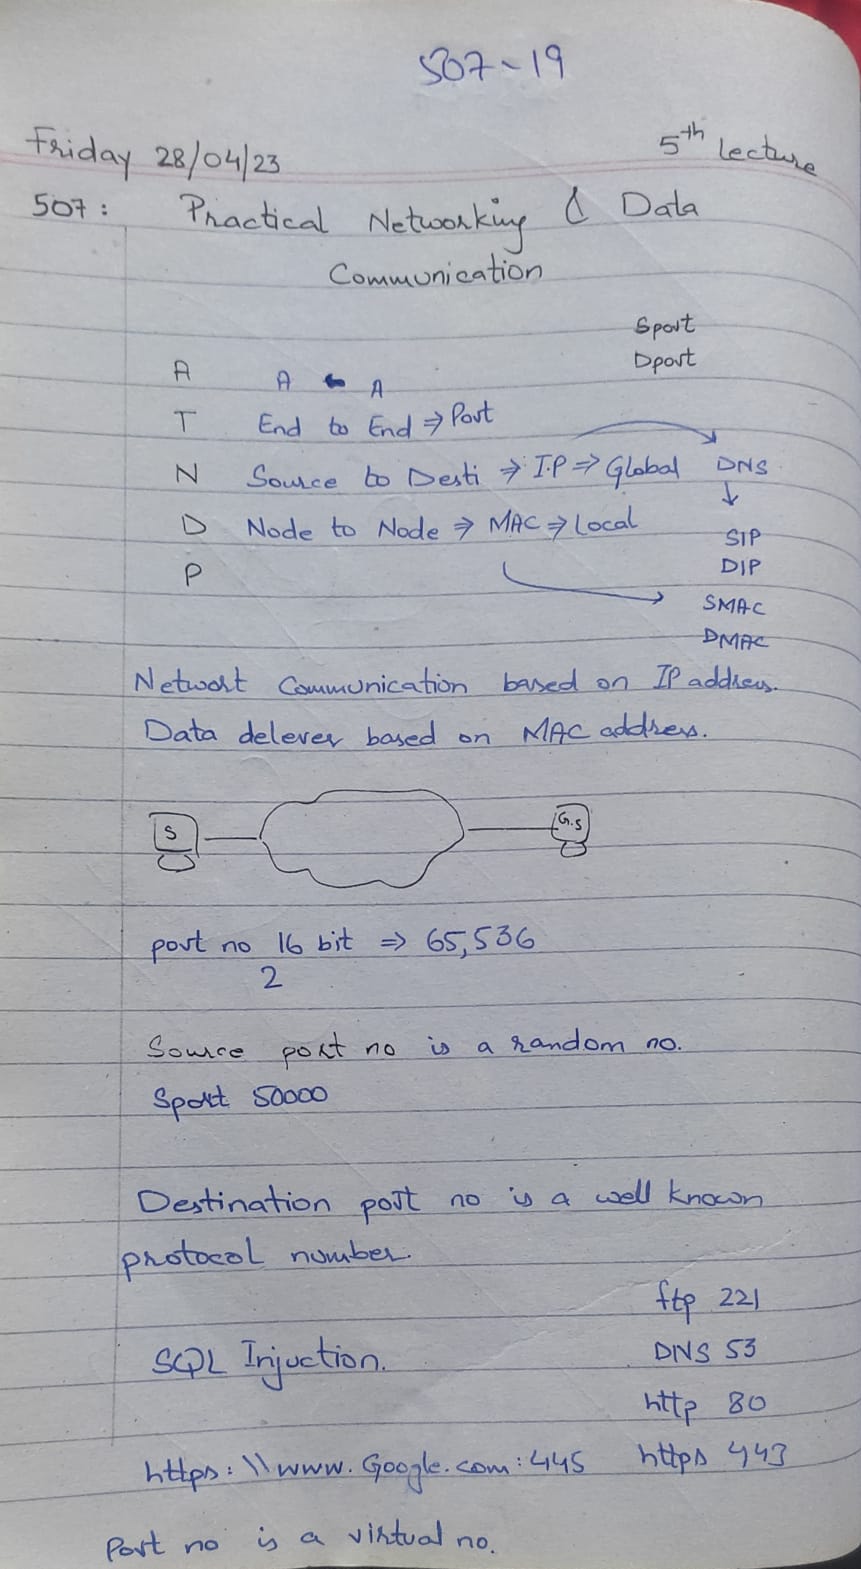 507-19
Friday 28/04/23 5th lecture
507: Practical Networking & Data
Communication
Sport
Dport
A A ← A
T End to End ⇒ Port
N Source to Desti ⇒ I.P ⇒ Global DNS
↓
D Node to Node ⇒ MAC ⇒ Local SIP
P DIP
SMAC
DMAC
Network Communication based on IP address.
Data delever based on MAC address.
S G.S
port no 16 bit ⇒ 65,536
2
Source port no is a random no.
Sport 50000
Destination port no is a well known
protocol number.
ftp 221
SQL Injuction. DNS 53
http 80
https:\\www.Google.com:445 https 443
Port no is a virtual no.